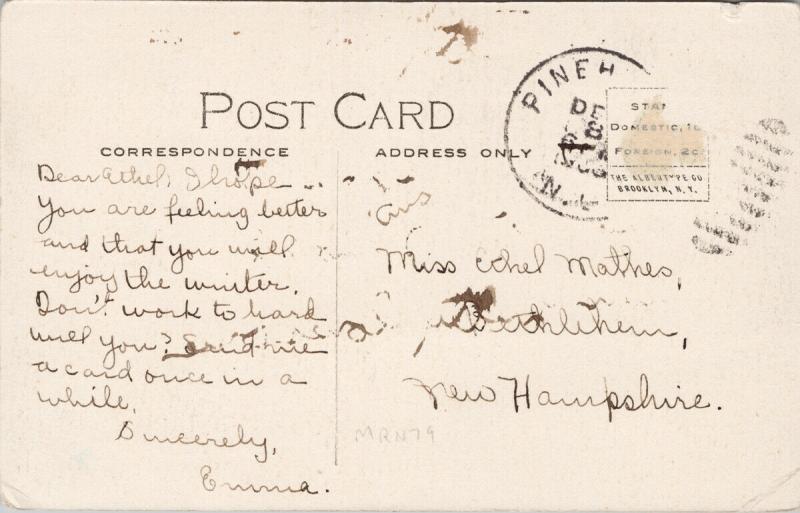 POST CARD
CORRESPONDENCE
ADDRESS ONLY
PINEH
DE
8
N.
STA
DOMESTIC, 1
FOREIGN, 2C
THE ALBERTYPE CO
BROOKLYN, N.Y.
Dear Ethel; I hope
you are feeling better
and that you will
enjoy the winter.
Don't work to hard
will you? Send me
a card once in a
while.
Sincerely,
Emma.
Ans
Miss Ethel Mathes,
Bethlehem,
New Hampshire.
MRN79